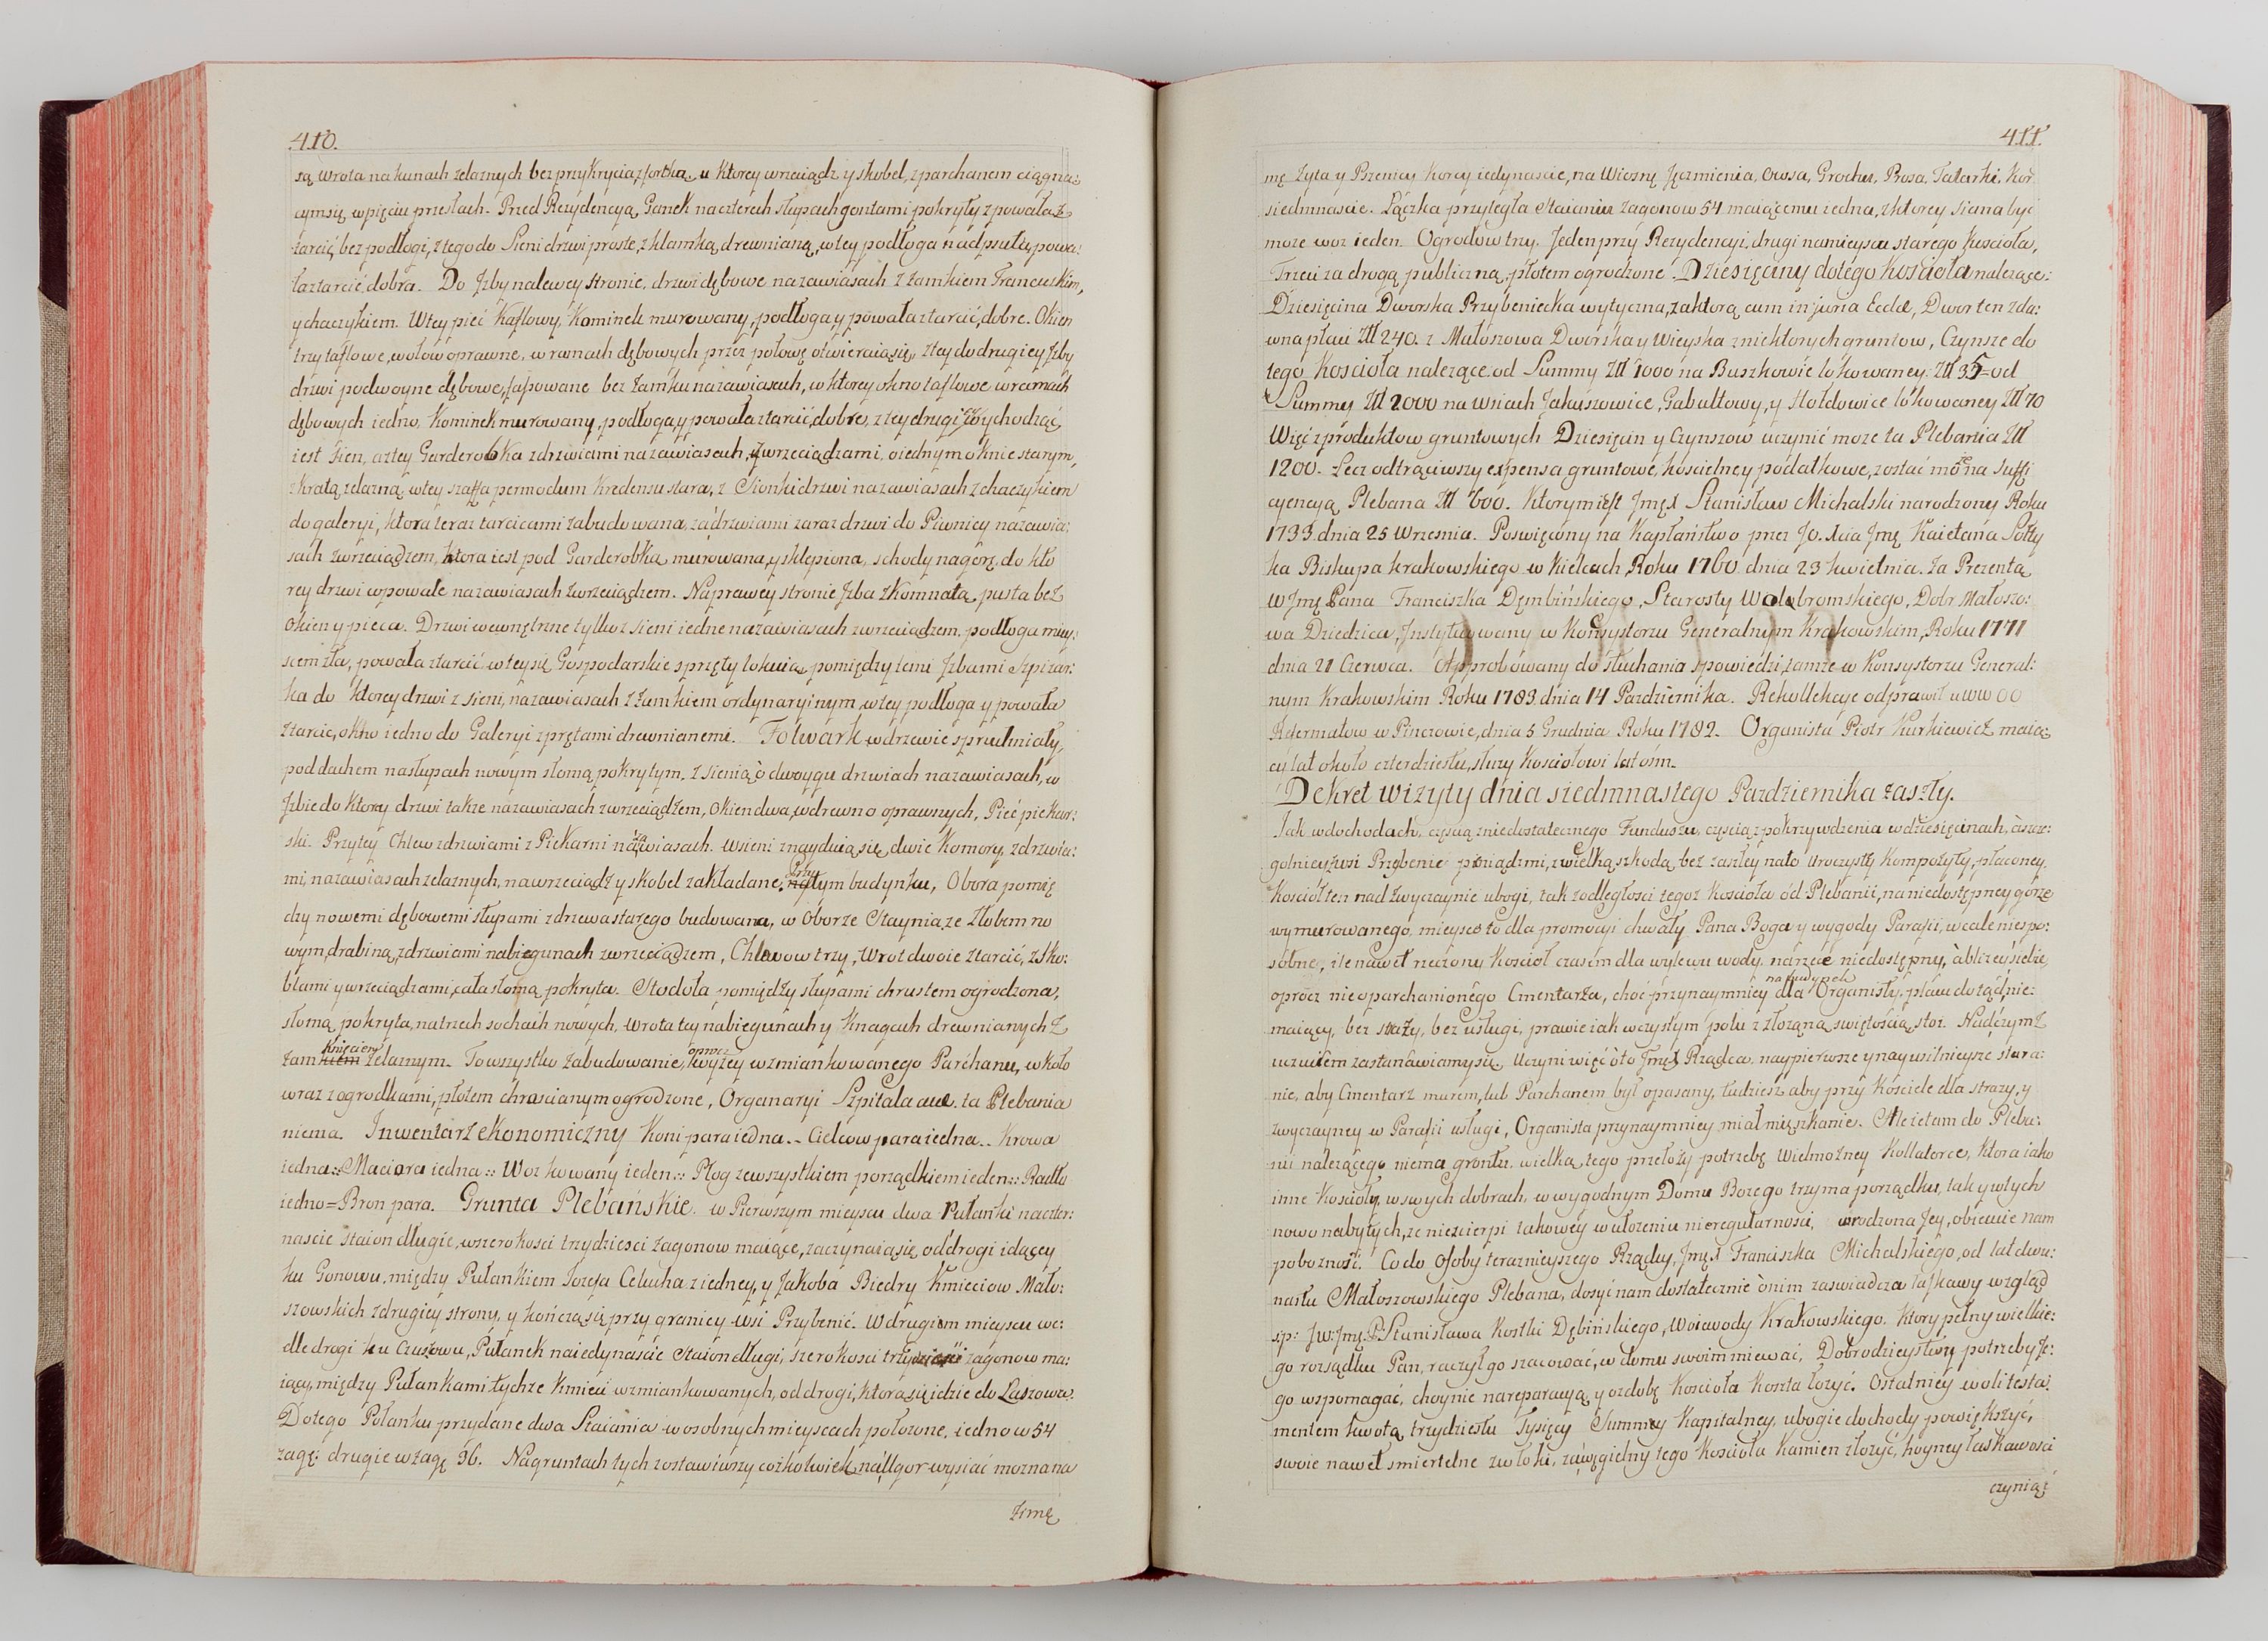 410.
są wrota na kunach zelaznych bez przykrycia z fortką, u ktorey wrzeciądz y skobel, z parchanem ciągną:
cym się w pięciu przesłach. Przed Rezydencyą Ganek na czterech słupach gontami pokryty z powałą z
tarcic, bez podłogi, z tego do Sieni drzwi proste, z klamką drewnianą, w tey podłoga nadpsuta, powa:
ła z tarcic dobra. Do Jzby na lewey stronie, drzwi dębowe na zawiasach z zamkiem Francuskim,
y chaczykiem. W tey piec Kaflowy, Kominek murowany, podłoga y powała z tarcic, dobre. Okien
trzy taflowe, w ołow oprawne, w ramach dębowych przez połowę otwieraią się, z tey do drugiey Jzby
drzwi podwoyne dębowe, fasowane bez zamku na zawiasach, w ktorey okno taflowe w ramach
dębowych iedno, Kominek murowany, podłoga, y powała z tarcic, dobre, z tey drugi wychodząc
iest sien, a z tey Garderobka z drzwiami na zawiasach, y wrzeciądzami, o iednym oknie starym,
z kratą zelazną, w tey szaffa per modum Kredensu stara, z Sionki drzwi na zawiasach z chaczykiem
do galeryi, ktora teraz tarcicami zabudowana, za drzwiami zaraz drzwi do Piwnicy na zawia:
sach z wrzeciądzem, ktora iest pod Garderobką, murowana, y sklepiona, schody na gorę, do kto
rey drzwi w powale na zawiasach z wrzeciądzem. Na prawey stronie Jzba z Komnatą, pusta bez
Okien y pieca. Drzwi wewnętrzne tylko z sieni iedne na zawiasach z wrzeciądzem, podłoga miey:
scem zła, powała z tarcic w tey się Gospodarskie sprzęty lokuią, pomiędzy temi Jzbami Szpizar:
ka do ktorey drzwi z sieni, na zawiasach z zamkiem ordynaryinym, w tey podłoga y powała
z tarcic, okno iedno do Galeryi z prętami drewnianemi. Folwark w drzewie spruchniały,
pod dachem na słupach nowym słomą pokrytym, z sienią o dwoygu drzwiach na zawiasach, w
Jzbie do ktorey drzwi takze na zawiasach z wrzeciądzem, Okien dwa, w drewno oprawnych, Piec piekar:
ski. Przy tey Chlew z drzwiami z Piekarni na zawiasach. W sieni znayduią się dwie Komory, z drzwia:
mi, na zawiasach zelaznych, na wrzeciądz y skobel zakładane. Przy tym budynku, Obora pomię
dzy nowemi dębowemi słupami z drzewa starego budowana, w Oborze Staynia, ze Złobem no
wym, drabiną, z drzwiami na biegunach z wrzeciądzem, Chlewow trzy, Wrot dwoie z tarcic, z sko:
blami y wrzeciądzami, cała słomą pokryta. Stodoła pomiędzy słupami chrustem ogrodzona,
słomą pokryta, na trzech sochach nowych, wrota tey na biegunach y Knagach drewnianych z
zamknięciem zelaznym. To wszystko zabudowanie, oprocz wyzey wzmiankowanego Parchanu, w koło
wraz z ogrodkami, płotem chrościanym ogrodzone, Organaryi Szpitala ani ta Plebania
niema. Inwentarz ekonomiczny Koni para iedna.. Cielcow para iedna.. Krowa
iedna :: Maciora iedna :: Woz kowany ieden :: Pług ze wszystkiem porządkiem ieden :: Radło
iedno = Bron para. Grunta Plebańskie. w Pierwszym mieyscu dwa Pułanki na czter:
nascie staion długie, w szerokosci trzydziesci zagonow maiące, zaczynaią się, od drogi idącey
ku Gonowu, między Pułankiem Jozefa Celucha z iedney, y Jakoba Biedry Kmieciow Mało:
szowskich z drugiey strony, y kończą się przy granicy wsi Przybenic. W drugim mieyscu we:
dle drogi ku Czuszowu, Pułanek na iedynascie Staion długi, szerokosci trzy zagonow ma:
iący, między Pułankami tychze Kmieci wzmiankowanych, od drogi, ktora się idzie do Laszowa.
Do tego Połanku przydane dwa Staiania w osobnych mieyscach połozone, iedno w 54
zagę: drugie w zagę 36. Na gruntach tych zostawiwszy cożkolwiek na Ugor wysiać mozna na
Zimę
411.
mę Zyta y Pszenicy Korcy iedynascie, na Wiosnę Jęczmienia, Owsa, Grochu, Prosa, Tatarki, Kor
siedmnascie. Łączka przyległa Staianiu zagonow 54 maiącemu iedna, z ktorey siana byc
moze woz ieden. Ogrodow trzy. Jeden przy Rezydencyi, drugi na mieyscu starego Kościoła,
Trzeci za drogą publiczną, płotem ogrodzone. Dziesięciny do tego Kościoła nalezące:
Dziesięcina Dworska Przybeniecka wytyczna, za ktorą cum injuria Eccłæ, Dwor ten zda:
wna płaci Zll 240. z Małoszowa Dworska y Wieyska z niektorych gruntow, Czynsze do
tego Kościoła nalezące od Summy Zll 1000 na Buszkowie lokowaney. Zll 35 = od
Summy Zll 2000 na wsiach Jakuszowice, Gabułtowy, y Stołdowice lokowaney Zll 70
Więc z produktow gruntowych Dziesięcin y Czynszow uczynić moze ta Plebania Zll
1200. Lecz odtrąciwszy expensa gruntowe, kościelne y podatkowe, zostać może na suffi
cyencyą Plebana Zll 600. Ktorym iest Jmęx Stanisław Michalski narodzony Roku
1733. dnia 25 Wrzesnia. Poswięcony na Kapłaństwo przez Jo. Xcia Jmę Kaietana Sołty
ka Biskupa krakowskiego w Kielcach Roku 1760 dnia 23 kwietnia. Za Prezentą
W Jmę Pana Franciszka Dęmbińskiego, Starosty Wolbromskiego, Dobr Małoszo:
wa Dziedzica, Jnstytuowany w Konsystorzu Generalnym Krakowskim, Roku 1771
dnia 21 Czerwca. Approbowany do słuchania spowiedzi, tamze w Konsystorzu General:
nym Krakowskim Roku 1783 dnia 14 Pazdziernika. Rekollekcye odprawił u WW OO
Reformatow w Pinczowie, dnia 5 Grudnia Roku 1782. Organista Piotr Kurkiewicz maią:
cy lat około czterdziestu, słuzy Kościołowi lat osm.
Dekret wizyty dnia siedmnastego Pazdziernika zaszły.
Jak w dochodach, częścią z niedostatecznego Funduszu, częścią z pokrzywdzenia w dziesięcinach, a szcze:
golniey z wsi Przębenic pieniądzmi, z wielką szkodą, bez zaszłey na to Uroczystey Kompozyty, płaconey.
Kościół ten nadzwyczaynie ubogi, tak z odległosci tegoz Kościoła od Plebanii, na niedostępney gorze
wymurowanego, mieysce to dla promocyi chwały Pana Boga y wygody Parafii, wcale niespo:
sobne, ile nawet rzeczony Kościoł czasem dla wylewu wody, na rzece niedostępny, a blizey siebie
oprocz nieoparchanionego Cmentarza, choć przynaymniey na budynek dla Organisty, placu dotąd nie:
maiący, bez strazy, bez usługi, prawie iak w czystym polu z złozoną swiętością stoi. Nad czym z
uczuciem zastanawiamy się. Uczyni więc o to Jmęx Rządca, naypierwsze y nayusilnieysze stara:
nie, aby Cmentarz murem, lub Parchanem był opasany, tudziesz aby przy Kościele dla strazy, y
zwyczayney w Parafii usługi, Organista przynaymniey miał mięszkanie. Ale ze tam do Pleba:
nii nalezącego niema gruntu, wielką tego przełozy potrzebę Wielmozney Kollatorce, ktora iako
inne Kościoły, w swych dobrach, w wygodnym Domu Bozego trzyma porządku, tak y w tych
nowo nabytych, ze niescierpi takowey w ułozeniu nieregularnosci, wrodzona Jey, obiecuie nam
poboznosć. Co do Osoby terazniejszego Rządcy, Jmęx Franciszka Michalskiego, od lat dwu:
nastu Małoszowskiego Plebana, dosyć nam dostatecznie o nim zaswiadcza łaskawy wzgląd
sp: Jw: Jmę P. Stanisława Kostki Dębińskiego, Woiewody Krakowskiego. Ktory pełny wielkie:
go rozsądku Pan, raczył go szacować, w domu swoim miewać, Dobrodzieystwy potrzeby Je:
go wspomagać, choynie na reparacyą y ozdobę Kościoła koszta łozyć. Ostatniey woli testa:
mentem kwotą trzydziestu Tysięcy Summy Kapitalney, ubogie dochody powiększyć,
swoie nawet smiertelne zwłoki, za węgielny tego Kościoła Kamien złozyć, hoyney łaskawosci
czyniąc